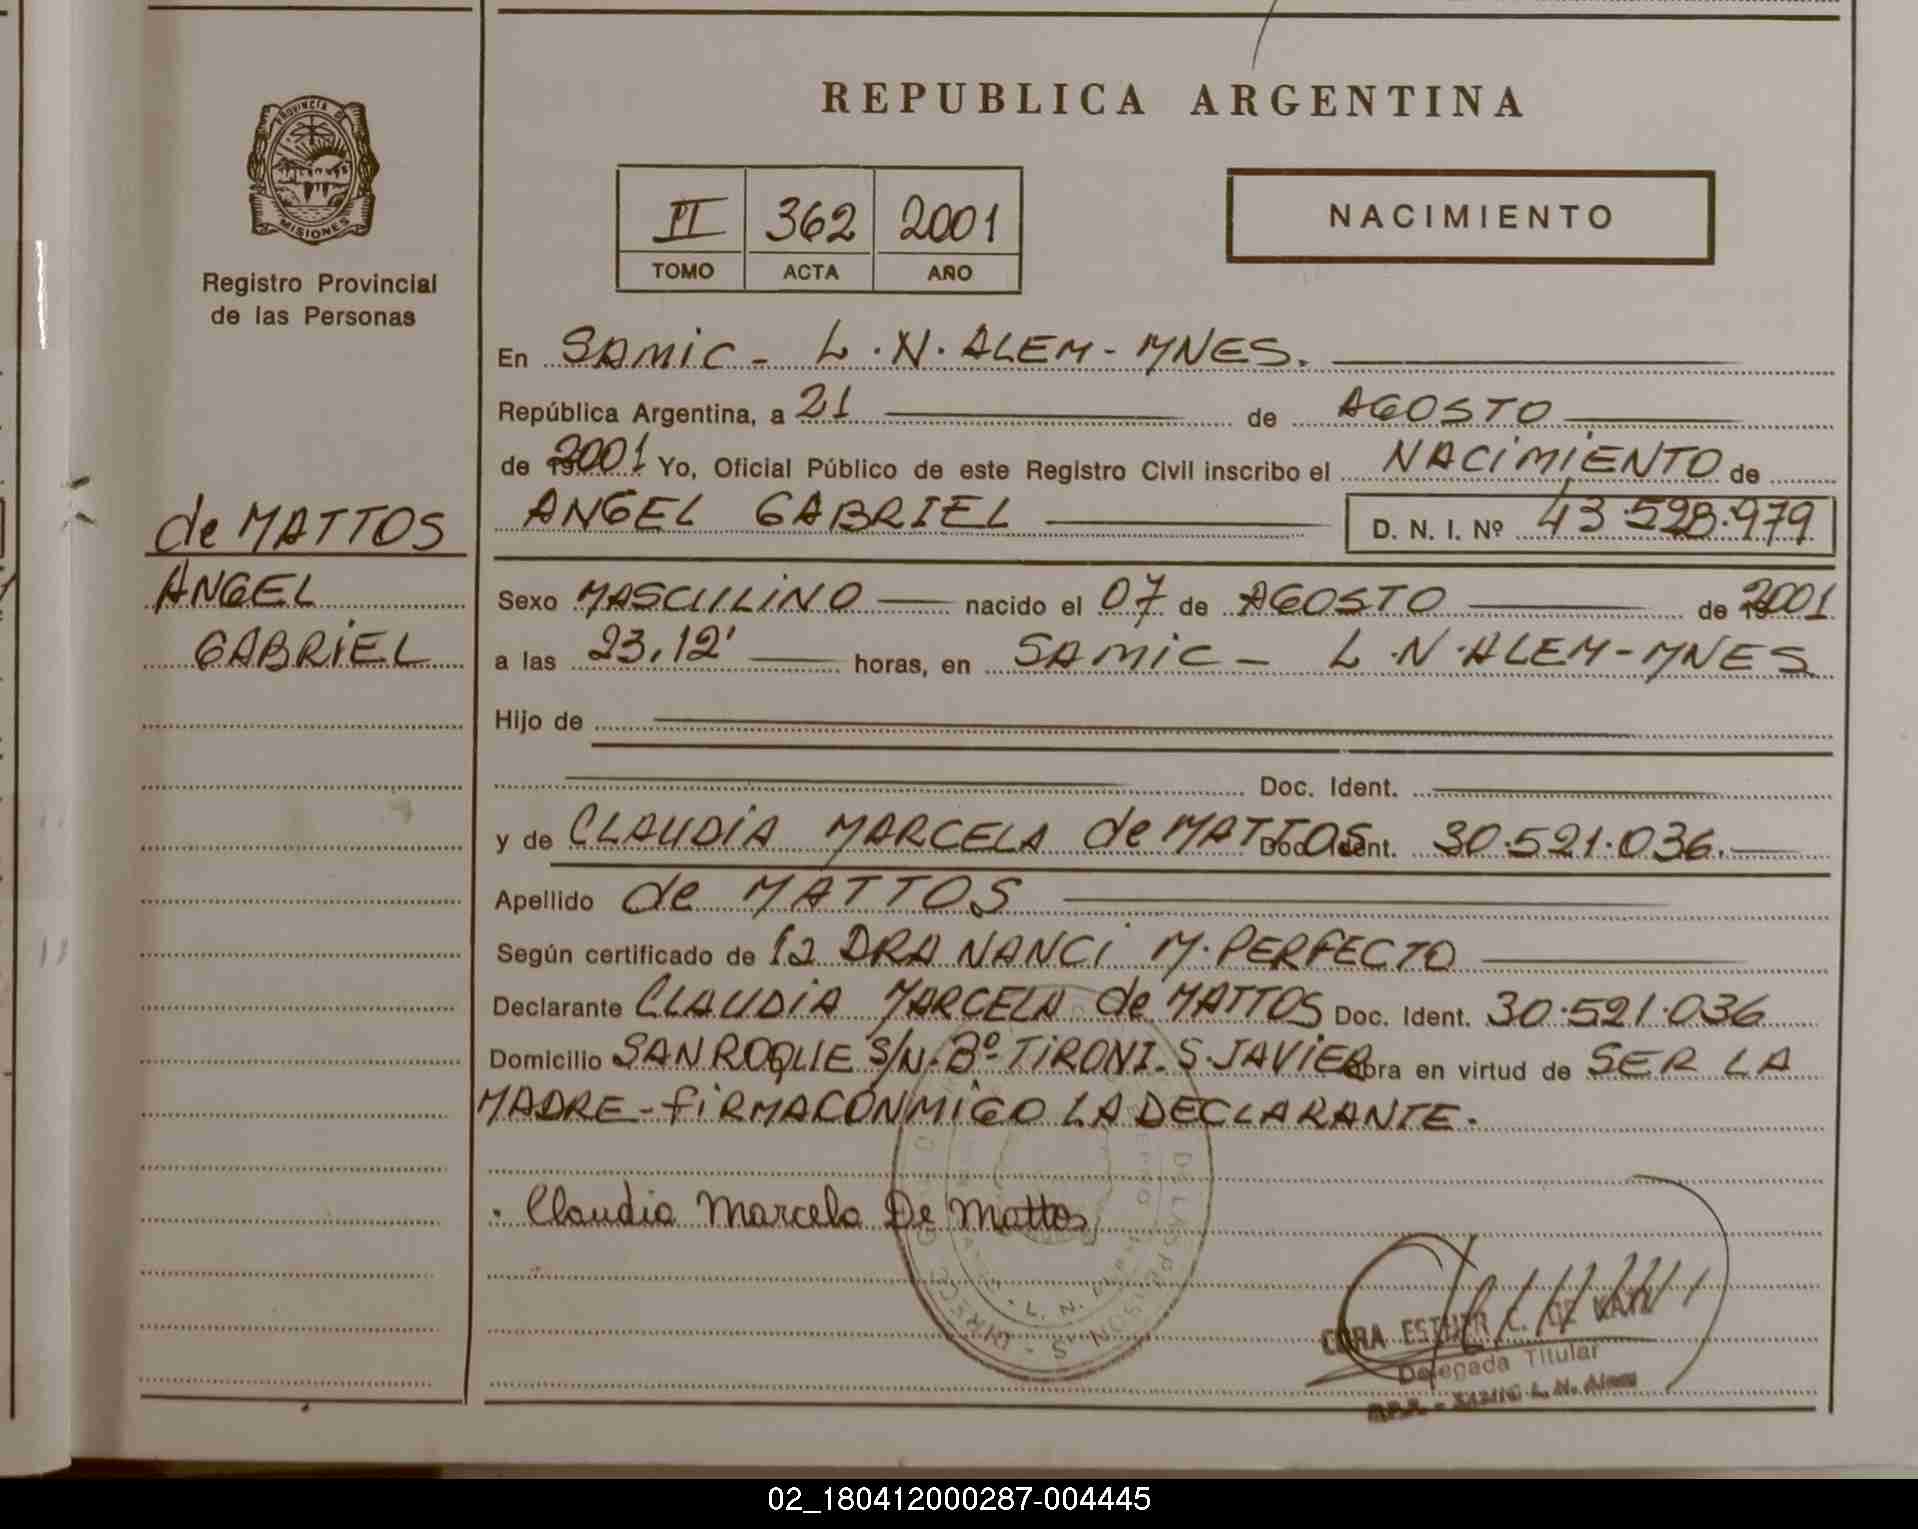 REPUBLICA ARGENTINA
PROVINCIA DE
MISIONES
Registro Provincial
de las Personas
II 362 2001
TOMO ACTA AÑO
NACIMIENTO
En SAMIC - L.N.ALEM - MNES.
República Argentina, a 21 de AGOSTO
de 2001 Yo, Oficial Público de este Registro Civil inscribo el NACIMIENTO de
ANGEL GABRIEL D. N. I. Nº 43.528.979
de MATTOS
ANGEL
GABRIEL
Sexo MASCULINO nacido el 07 de AGOSTO de 2001
a las 23,12' horas, en SAMIC - L.N.ALEM - MNES
Hijo de
Doc. Ident.
y de CLAUDIA MARCELA de MATTOS Doc. Ident. 30.521.036.
Apellido de MATTOS
Según certificado de la DRA NANCI M. PERFECTO
Declarante CLAUDIA MARCELA de MATTOS Doc. Ident. 30.521.036
Domicilio SAN ROQUE S/N. Bº TIRONI. S. JAVIER obra en virtud de SER LA
MADRE - FIRMA CONMIGO LA DECLARANTE.
Claudia Marcela De Mattos
ESTHER C. DE
Delegada Titular
L. N. Alem
02_180412000287-004445